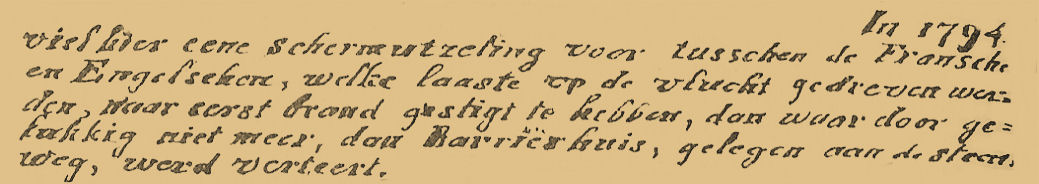 In 1794.
viel hier eene schermutzeling voor tusschen de Fransche
en Engelschen, welke laaste op de vlucht gedreven wer=
den, naar eerst brand gestigt te hebben, dan waar door ge=
lukkig niet meer, dan Barriërhuis, gelegen aan de steen,
weg, werd verteert.